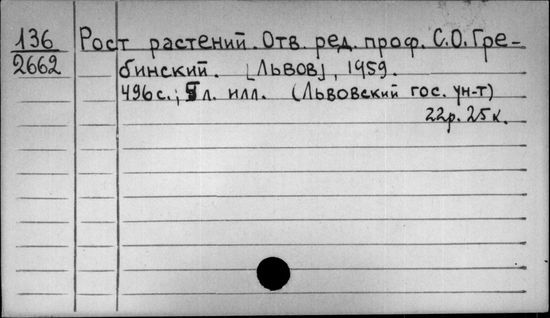 136 Рост растений. Отв. ред. проф. С.О. Гре-
2662 бинский. [Львов], 1959.
496 с.; 5 л. илл. (Львовский гос. ун-т)
22р. 25к.